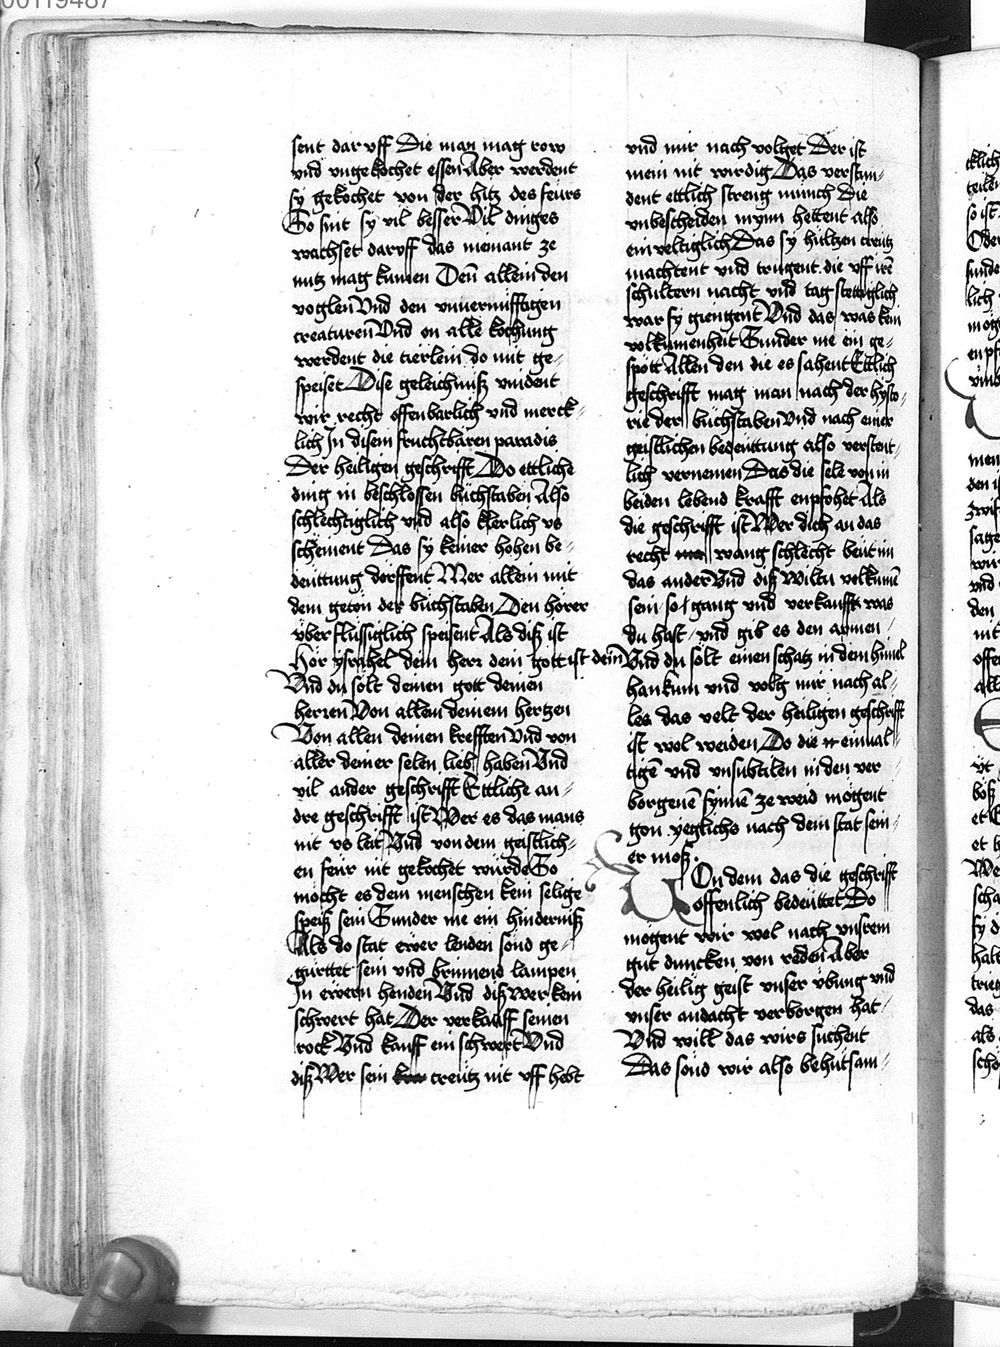 00119487
sent dar vff Die man mag row
vnd vngekochet essen Aber werdent
sy gekochet von der hitz des feürs
So sint sy vil besser Vil dinges
wachset daruff das niemant ze
nutz mag kumen Denn allein den
voglen Vnd den vnuernufftigen
creaturen Vnd on alle kochung
werdent die tierlein do mit ge-
speiset Dise geleichniß vindent
wir recht offenbarlich vnd merck-
lich In disem fruchtbaren paradis
Der heiligen geschrifft Wo ettliche
ding in beschlossen buchstaben Also
schlechtiglich vnd also klerlich vs
schinent Das sy keiner hohen be-
deuttung dörffent Mer allein mit
dem getön der buchstaben Den hörer
überflüssiglich speisent Als diß ist
Hör ysrahel dein herr dein gott ist dein
Vnd du solt deinen gott deinen
herren Von allem deinem hertzen
Von allen deinen krefften Vnd von
aller deiner selen lieb haben Vnd
vil ander geschrifft Ettliche an-
dre geschrifft ist Wer es das mans
nit vs leit Vnd von dem geistlich-
en feür nit gekochet würde So
möcht es dem menschen kein selige
speiß sein Sunder me ein hinderniß
Als do stat ewer lenden sönd ge-
gürttet sein vnd brinnend lampen
In ewern henden Vnd diß wer kein
schwert hat Der verkauff seinen
rock Vnd kauff ein schwert Vnd
diß Wer sein creütz nit vff hebt
vnd mir nach volget Der ist
mein nit wirdig Das verstun-
dent ettlich streng münch Die
vnbescheiden mynn hettent also
einveltiglich Das sy hültzen creütz
machtent vnd trugent die vff iren
schultern nacht vnd tag stettiglich
war sy giengent Vnd das was kein
volkumenheit Sunder me ein ge-
spött Allen den die es sahent Ettlich
geschrifft mag man nach der hysto-
rie der buchstaben Vnd nach einer
geistlichen bedeüttung also verstent-
lich vernemen Das die sele von in
beiden lebend krafft enpfohet Als
die geschrifft ist Wer dich an das
recht wang schlecht beüt im
das ander Vnd diß Wiltu volkumen
sein so gang vnd verkauff was
du hast vnd gib es den armen
Vnd du solt einen schatz in dem himel
han kum vnd volg mir nach al-
les das velt der heiligen geschrifft
ist wol weiden Do die einual-
tigen vnd vnsubtilen in den ver
borgenen synnen ze weid mögent
gon yeglichs nach dem stat sein-
er moß.
VOn dem das die geschrift
offenlich bedeüttet Do
mögent wir wol nach vnsrem
gut duncken von reden Aber
der heilig geist vnser übung vnd
vnser andacht verborgen hat
Vnd will das wirs suchent
Das sönd wir also behutsam-